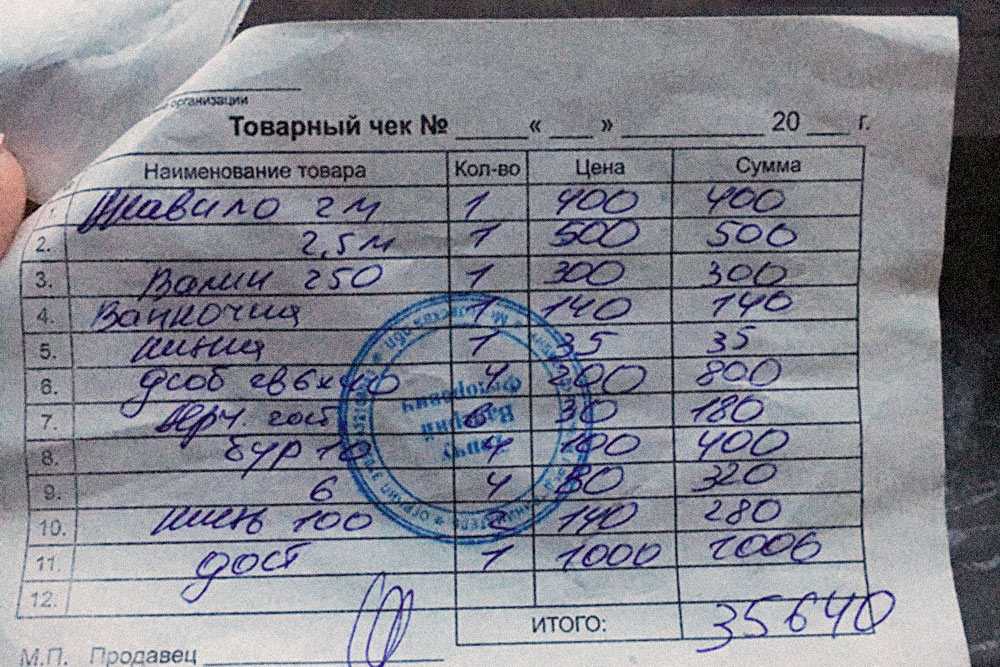 организации
Товарный чек № _____ « ___ » __________ 20 ___ г.
Наименование товара Кол-во Цена Сумма
1. Правило 2м 1 400 400
2. 2,5м 1 500 500
3. Валик 250 1 300 300
4. Ванночка 1 140 140
5. 1 35 35
6. 4 200 800
7. перч. 6 30 180
8. бур 10 4 100 400
9. 6 4 80 320
10. 100 2 140 280
11. дост 1 1000 1000
12.
ИТОГО: 35640
М.П. Продавец